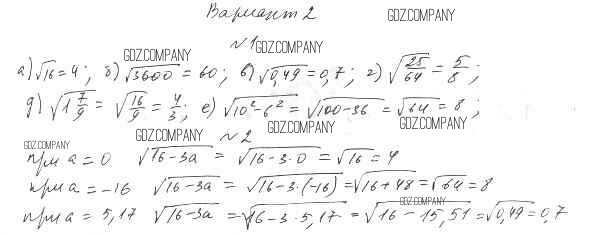 Вариант 2 GDZ.COMPANY
№1 GDZ.COMPANY
GDZ.COMPANY
а) √16 = 4; б) √3600 = 60; в) √0,49 = 0,7; г) √25/64 = 5/8;
д) √1 7/9 = √16/9 = 4/3; е) √10²-6² = √100-36 = √64 = 8;
GDZ.COMPANY GDZ.COMPANY
GDZ.COMPANY №2 GDZ.COMPANY
при а = 0 √16-3а = √16-3·0 = √16 = 4
при а = -16 √16-3а = √16-3·(-16) = √16+48 = √64 = 8
GDZ.COMPANY
при а = 5,17 √16-3а = √16-3·5,17 = √16-15,51 = √0,49 = 0,7